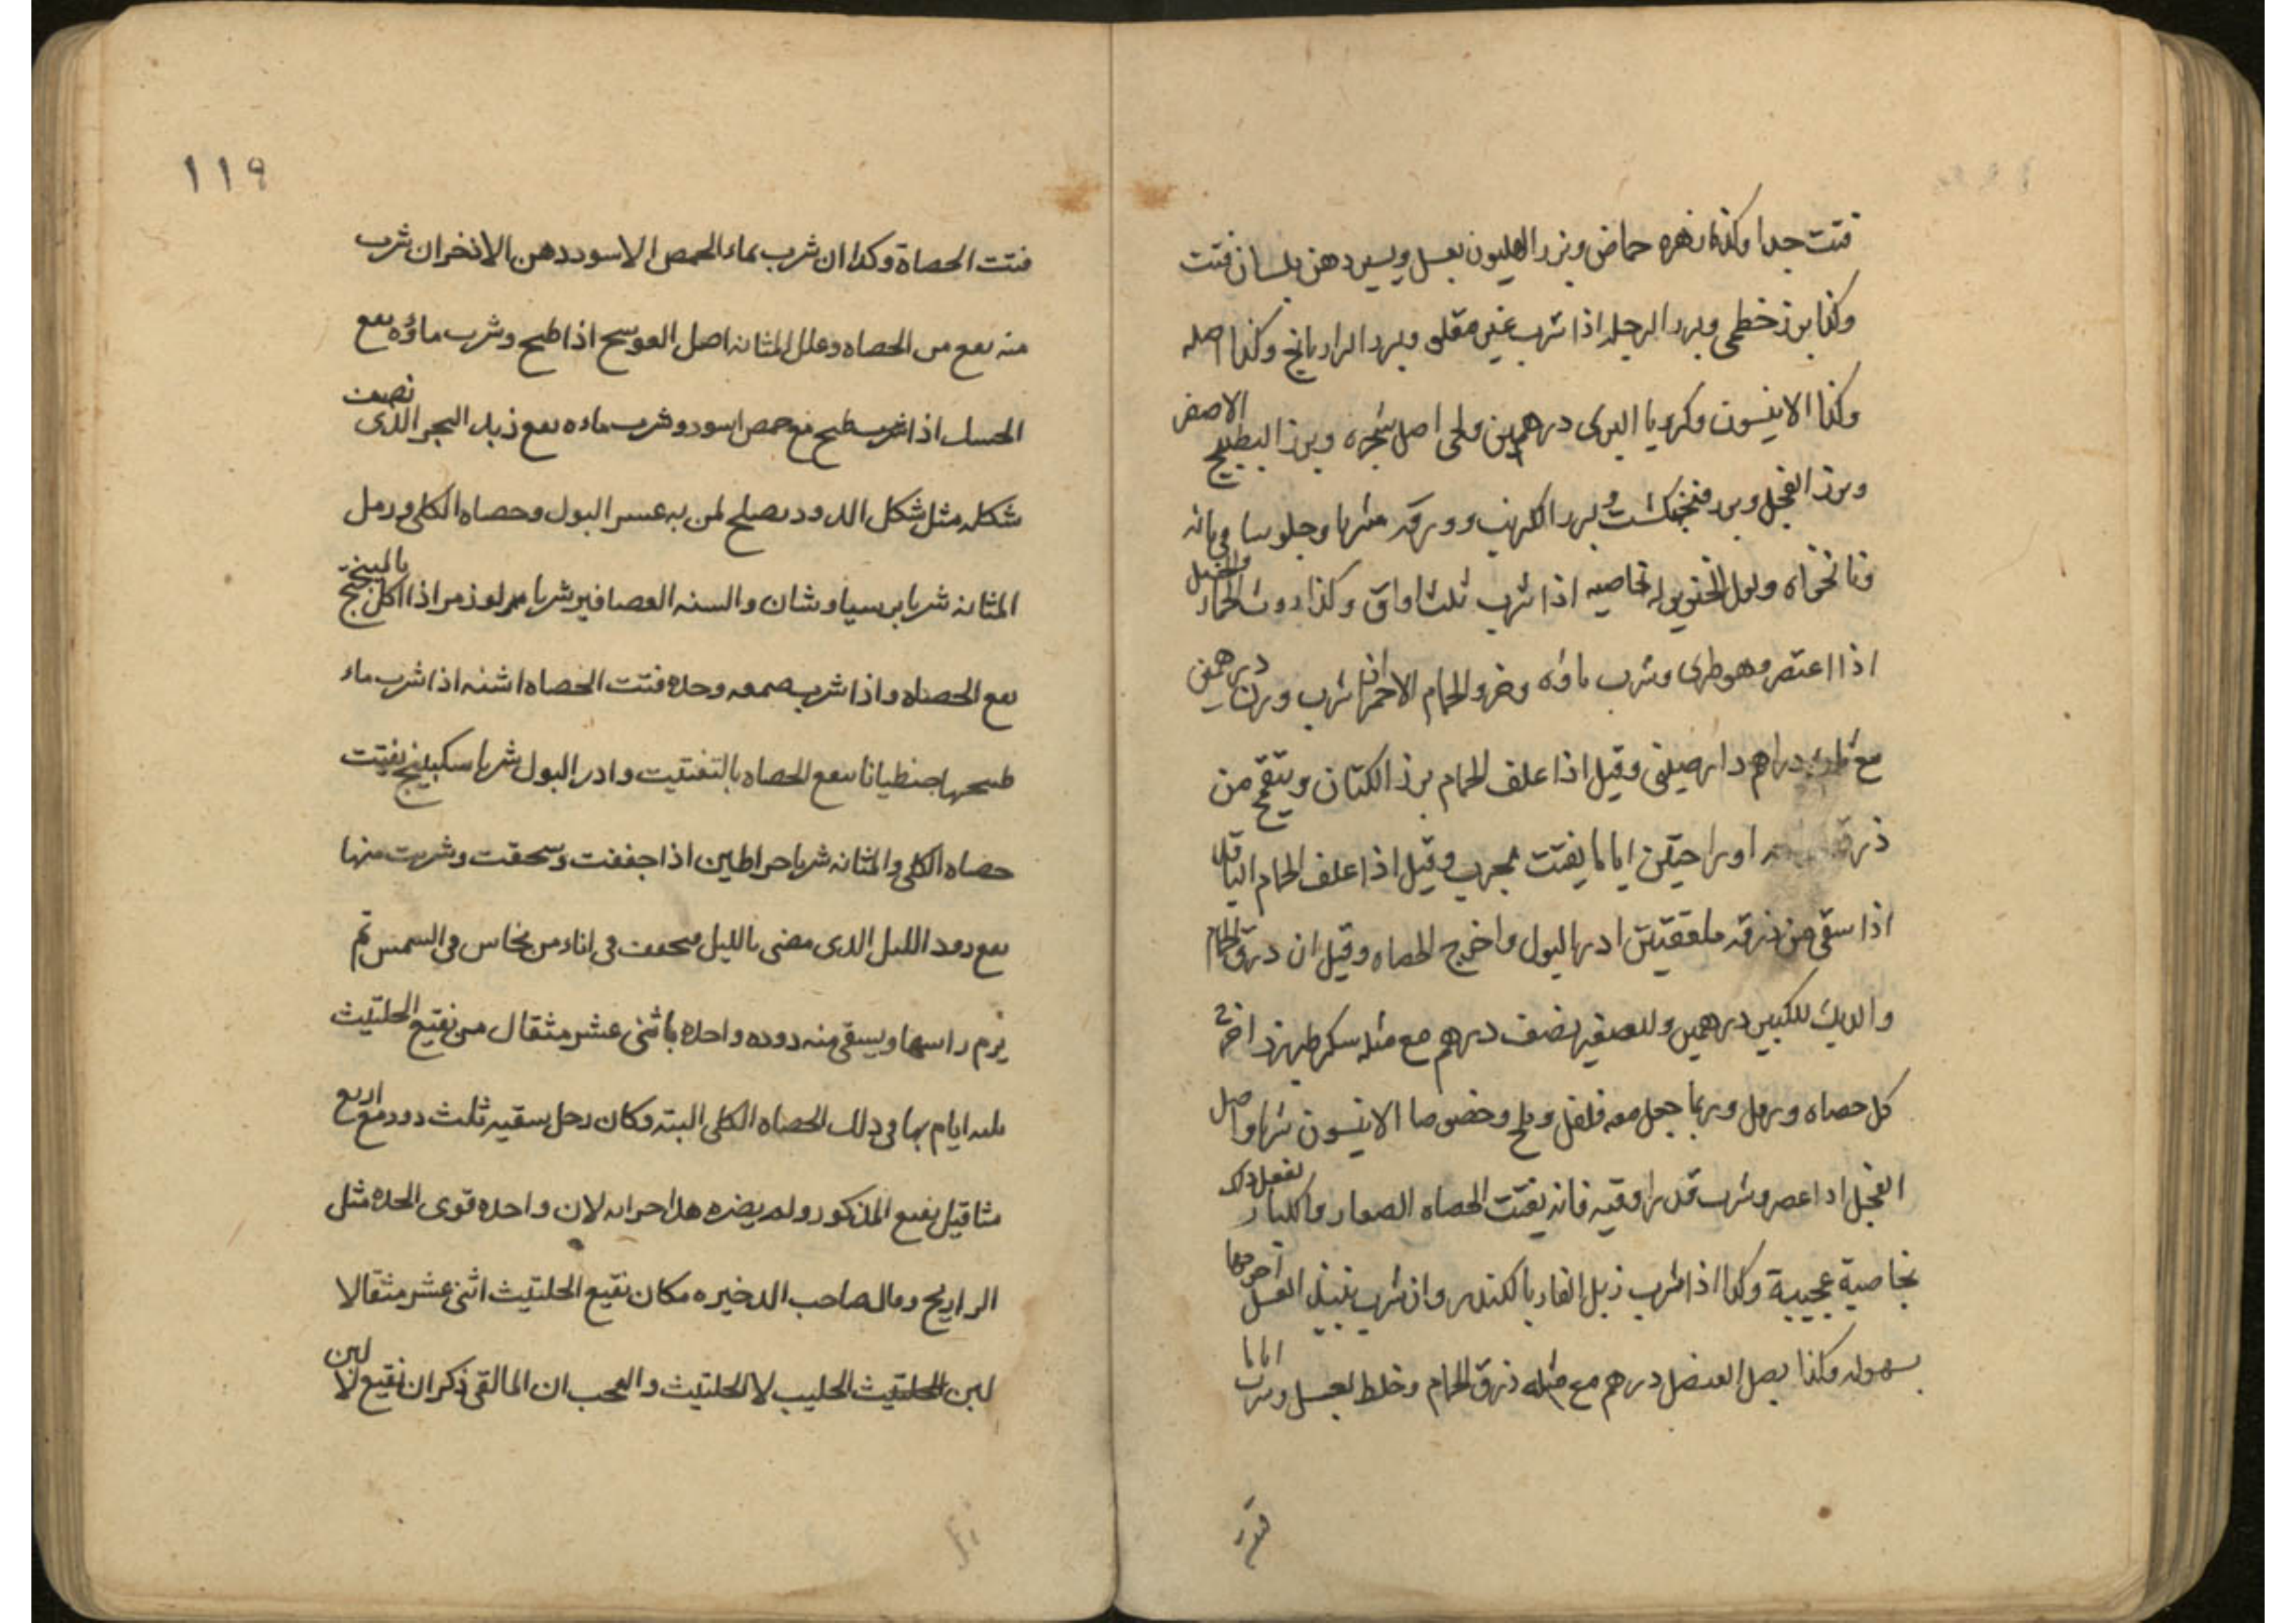 فتت جدا وكذا زهره حماض وبزر الهليون بعسل ويسير دهن بلسان فتت
وكذا بزر خطمى وبزر الرجله اذا شرب غير مقلى وبزر الرازيانج وكذا اصله
وكذا الانيسون وكرويا البرى درهمين ولحى اصل شجره وبزر البطيخ الاصفر
وبزر الفجل وبزر فنجنكشت وبزر الكرنب وورقه شربا وجلوسا فى مائه
ونانخواه وبول الخنزير له خاصيه اذا شرب ثلث اواق وكذا روث الحمار والخيل
اذا اعتصر وهو طرى وشرب ماؤه وخرو الحمام الاحمر ان شرب وزن درهمين
مع ثلثه دراهم دارصينى وقيل اذا علف الحمام بزر الكتان وينقح من
ذرقه اوراحتين اياما يفتت مجرب وقيل اذا علف الحمام الباقلا
اذا سقى من ذرقه ملعقتين ادر البول واخرج الحصاه وقيل ان ذرق الحمام
والديك للكبير درهمين وللصغير نصف درهم مع مثله سكر طبرزد اخرج
كل حصاه ورمل وربما جعل معه فلفل وملح وخصوصا الانيسون شربا واصل
الفجل اذا عصر وشرب قدر اوقيه فانه يفتت الحصاه الصغار والكبار يفعل ذلك
بخاصية عجيبة وكذا اذا شرب زبل الفار بالكندر وان شرب بنبيذ العسل اخرجها
بسهوله وكذا بصل العنصل درهم مع مثله ذرق الحمام وخلط بعسل وشرب اياما
١١٩
فتت الحصاة وكذا ان شرب بماء الحمص الاسود دهن الاذخر ان شرب
منه نفع من الحصاه وعلل المثانه اصل العوسج اذا طبخ وشرب ماؤه نفع
الحسك اذا شرب طبخ مع حمص اسود وشرب ماءه نفع ذيل البحر الذى نصف
شكله مثل شكل الدود يصلح لمن به عسر البول وحصاه الكلى ورمل
المثانه شربا برسياوشان والسنه العصافير شربا مر لوز مر اذا اكل بالميبختج
نفع الحصاه واذا شرب صمغه وحده فتت الحصاه اشنه اذا شرب ماء
طبيخها جنطيانا ينفع الحصاه بالتفتيت وادر البول شربا سكبينج يفتت
حصاه الكلى والمثانه شربا خراطين اذا جففت وسحقت وشربت منها
نفع دود الليل الذى مضى بالليل مجفف فى اناء من نحاس فى الشمس ثم
يرم راسها ويسقى منه دوده واحده باثنى عشر مثقال من نقيع الحلتيث
ثلثه ايام بها فى ذلك الحصاه الكلى البته وكان رجل سقيه ثلث دود مع اربع
مثاقيل نقيع المذكور ولم يضره هذا حراره لان واحده قوى الحده مثل
الذراريح وقال صاحب الذخيره مكان نقيع الحلتيث اثنى عشر مثقالا
لبن الحليب لا الحلتيث والعجب ان المالقى ذكر ان نقيع لا لبن